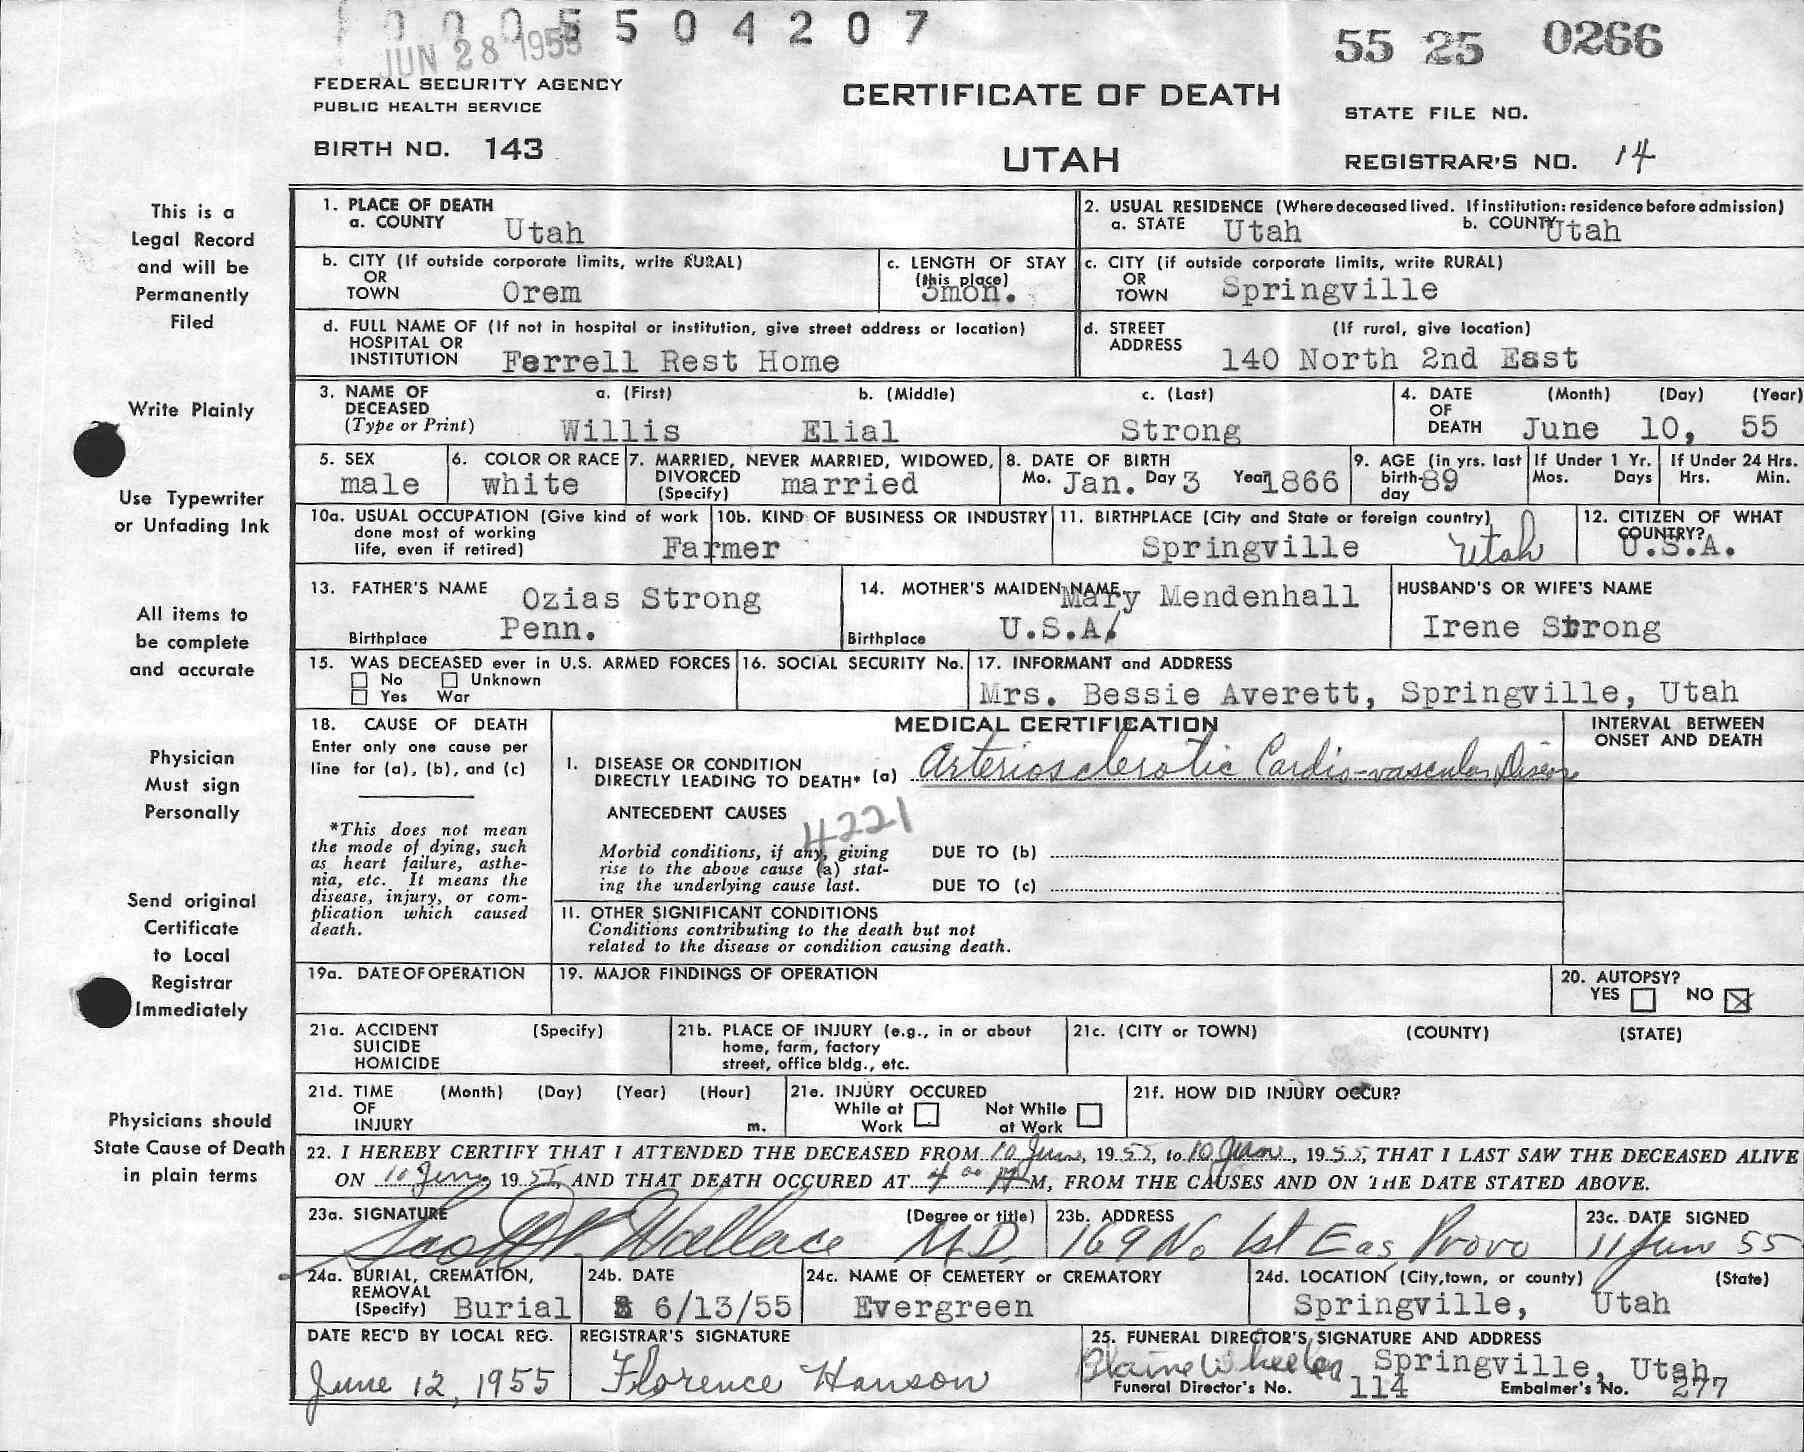 0 0 0 5 5 0 4 2 0 7
JUN 28 1955
55 25 0266
FEDERAL SECURITY AGENCY
PUBLIC HEALTH SERVICE
CERTIFICATE OF DEATH
STATE FILE NO.
BIRTH NO. 143
UTAH
REGISTRAR'S NO. 14
This is a
Legal Record
and will be
Permanently
Filed
Write Plainly
Use Typewriter
or Unfading Ink
All items to
be complete
and accurate
Physician
Must sign
Personally
Send original
Certificate
to Local
Registrar
Immediately
Physicians should
State Cause of Death
in plain terms
1. PLACE OF DEATH
a. COUNTY Utah
2. USUAL RESIDENCE (Where deceased lived. If institution: residence before admission)
a. STATE Utah b. COUNTY Utah
b. CITY (If outside corporate limits, write RURAL)
OR
TOWN Orem
c. LENGTH OF STAY
(this place)
3mon.
c. CITY (if outside corporate limits, write RURAL)
OR
TOWN Springville
d. FULL NAME OF (If not in hospital or institution, give street address or location)
HOSPITAL OR
INSTITUTION Ferrell Rest Home
d. STREET (If rural, give location)
ADDRESS 140 North 2nd East
3. NAME OF a. (First) b. (Middle) c. (Last)
DECEASED
(Type or Print) Willis Elial Strong
4. DATE (Month) (Day) (Year)
OF
DEATH June 10, 55
5. SEX
male
6. COLOR OR RACE
white
7. MARRIED, NEVER MARRIED, WIDOWED,
DIVORCED
(Specify) married
8. DATE OF BIRTH
Mo. Jan. Day 3 Year 1866
9. AGE (in yrs. last
birth-
day 89
If Under 1 Yr.
Mos. Days
If Under 24 Hrs.
Hrs. Min.
10a. USUAL OCCUPATION (Give kind of work
done most of working
life, even if retired) Farmer
10b. KIND OF BUSINESS OR INDUSTRY
11. BIRTHPLACE (City and State or foreign country)
Springville Utah
12. CITIZEN OF WHAT
COUNTRY?
U.S.A.
13. FATHER'S NAME Ozias Strong
Birthplace Penn.
14. MOTHER'S MAIDEN NAME Mary Mendenhall
Birthplace U.S.A.
HUSBAND'S OR WIFE'S NAME
Irene Strong
15. WAS DECEASED ever in U.S. ARMED FORCES
No Unknown
Yes War
16. SOCIAL SECURITY No.
17. INFORMANT and ADDRESS
Mrs. Bessie Averett, Springville, Utah
18. CAUSE OF DEATH
Enter only one cause per
line for (a), (b), and (c)
*This does not mean
the mode of dying, such
as heart failure, asthe-
nia, etc. It means the
disease, injury, or com-
plication which caused
death.
MEDICAL CERTIFICATION
INTERVAL BETWEEN
ONSET AND DEATH
I. DISEASE OR CONDITION
DIRECTLY LEADING TO DEATH* (a) Arteriosclerotic Cardio-vascular Disease
ANTECEDENT CAUSES
4221
Morbid conditions, if any, giving
rise to the above cause (a) stat-
ing the underlying cause last.
DUE TO (b)
DUE TO (c)
II. OTHER SIGNIFICANT CONDITIONS
Conditions contributing to the death but not
related to the disease or condition causing death.
19a. DATE OF OPERATION
19. MAJOR FINDINGS OF OPERATION
20. AUTOPSY?
YES NO X
21a. ACCIDENT (Specify)
SUICIDE
HOMICIDE
21b. PLACE OF INJURY (e.g., in or about
home, farm, factory
street, office bldg., etc.
21c. (CITY or TOWN) (COUNTY) (STATE)
21d. TIME (Month) (Day) (Year) (Hour)
OF
INJURY m.
21e. INJURY OCCURED
While at Work Not While at Work
21f. HOW DID INJURY OCCUR?
22. I HEREBY CERTIFY THAT I ATTENDED THE DECEASED FROM 10 June, 1955, to 10 June, 1955, THAT I LAST SAW THE DECEASED ALIVE
ON 10 June, 1955, AND THAT DEATH OCCURED AT 4 00 P M, FROM THE CAUSES AND ON THE DATE STATED ABOVE.
23a. SIGNATURE (Degree or title)
Scott Wallace M.D.
23b. ADDRESS
169 No 1st Eas Provo
23c. DATE SIGNED
11 Jun 55
24a. BURIAL, CREMATION,
REMOVAL
(Specify) Burial
24b. DATE
6/13/55
24c. NAME OF CEMETERY or CREMATORY
Evergreen
24d. LOCATION (City, town, or county) (State)
Springville, Utah
DATE REC'D BY LOCAL REG.
June 12, 1955
REGISTRAR'S SIGNATURE
Florence Hanson
25. FUNERAL DIRECTOR'S SIGNATURE AND ADDRESS
Blaine Wheeler Springville, Utah
Funeral Director's No. 114 Embalmer's No. 277